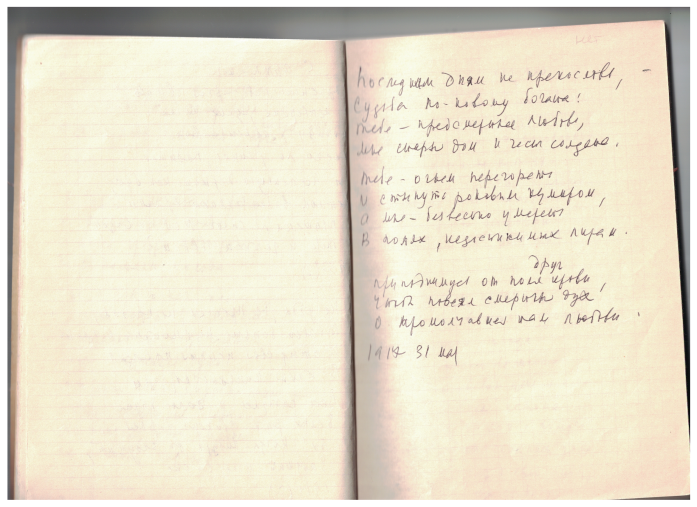 Последним дням не прекослов,
Судьба по-новому богата!
Тебе – предсмертная любовь,
Мне смерть дом и честь солдата.
Тебе – огнем перегореть
И стынуть роковым кумиром,
А мне – безвестно умереть
В полях,
друг
от поля крови,
Чтоб повеял смерти дух
О промолчавшей нам любови.
1917 31 мар